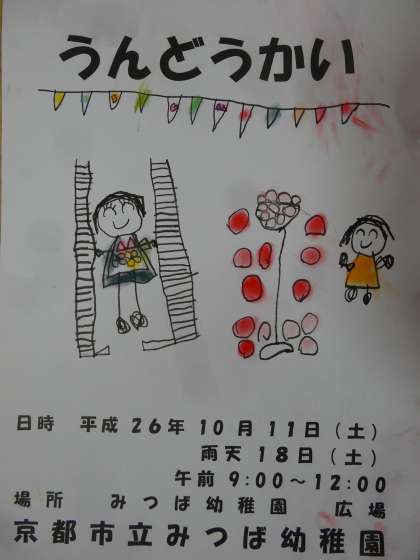 うんどうかい
日時 平成 26年 10月 11日（土）
雨天 18日（土）
午前 9:00～12:00
場所 みつば幼稚園 広場
京都市立みつば幼稚園